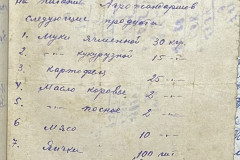 на питание Агрожандармов
следующие продукта
1. Муки Ячменной 30 кгр.
2. -"- кукурузной 15 -"-
3 Картофеля 25 -"-
4. Масло коровье 2 -"-
5 -"- посное 2 -"-
6 Мясо 10 -"-
7. Яички 100 шт